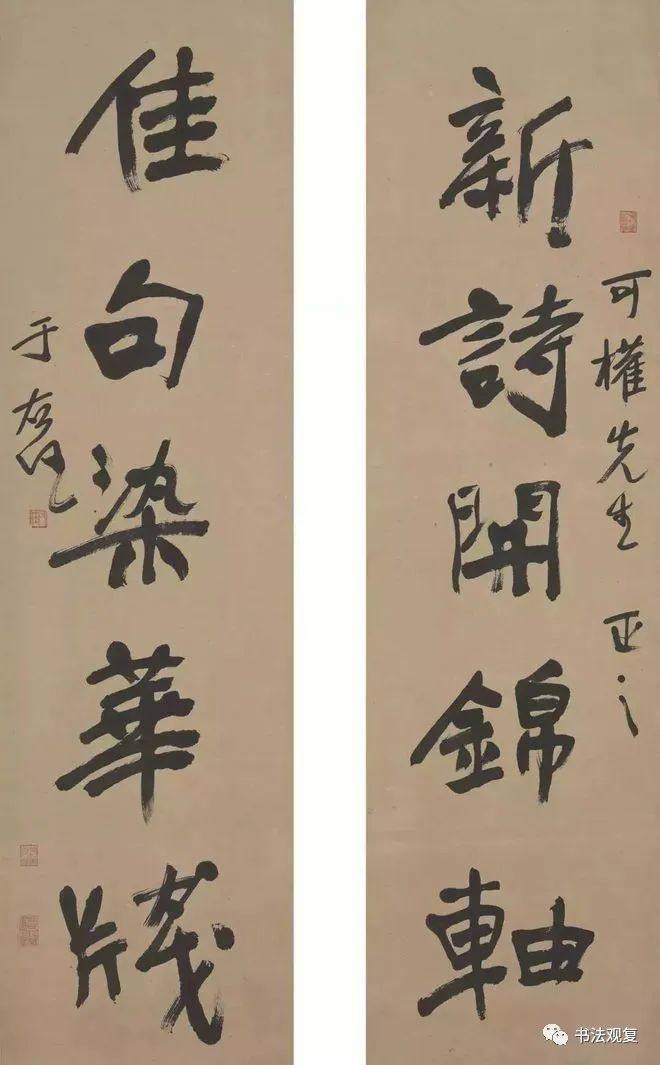 新詩開錦軸
可權先生 正之
佳句染華牋
于右任
书法观复